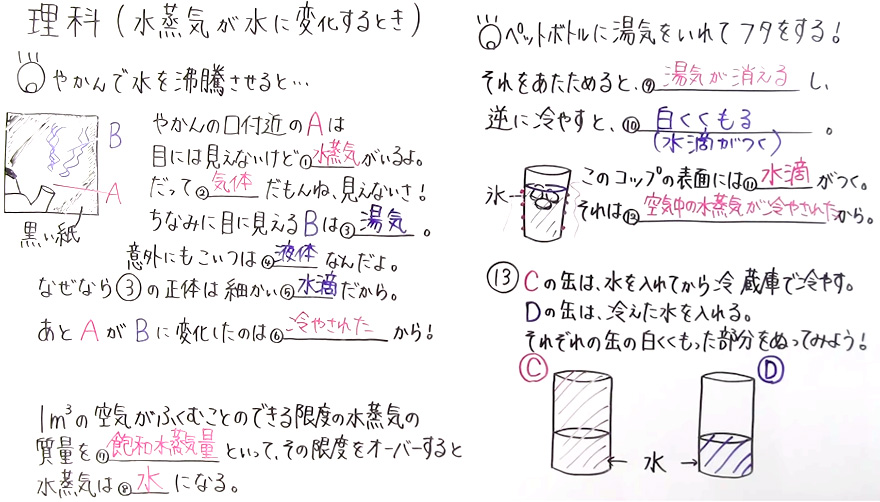 理科(水蒸気が水に変化するとき)
やかんで水を沸騰させると…
B
A
黒い紙
やかんの口付近のAは
目には見えないけど①水蒸気がいるよ。
だって②気体だもんね、見えないさ!
ちなみに目に見えるBは③湯気。
意外にもこいつは④液体なんだよ。
なぜなら③の正体は細かい⑤水滴だから。
あとAがBに変化したのは⑥冷やされたから!
1m³の空気がふくむことのできる限度の水蒸気の
質量を⑦飽和水蒸気量といって、その限度をオーバーすると
水蒸気は⑧水になる。
ペットボトルに湯気をいれてフタをする!
それをあたためると、⑨湯気が消えるし、
逆に冷やすと、⑩白くくもる。
(水滴がつく)
氷
このコップの表面には⑪水滴がつく。
それは⑫空気中の水蒸気が冷やされたから。
⑬Cの缶は、水を入れてから冷蔵庫で冷やす。
Dの缶は、冷えた水を入れる。
それぞれの缶の白くくもった部分をぬってみよう!
C
D
水